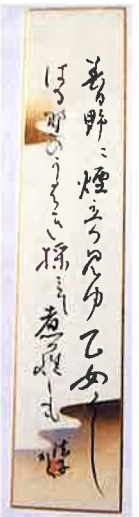 春日野に煙立つ見ゆ乙女らし
はる野のうはぎ採みて煮らしも